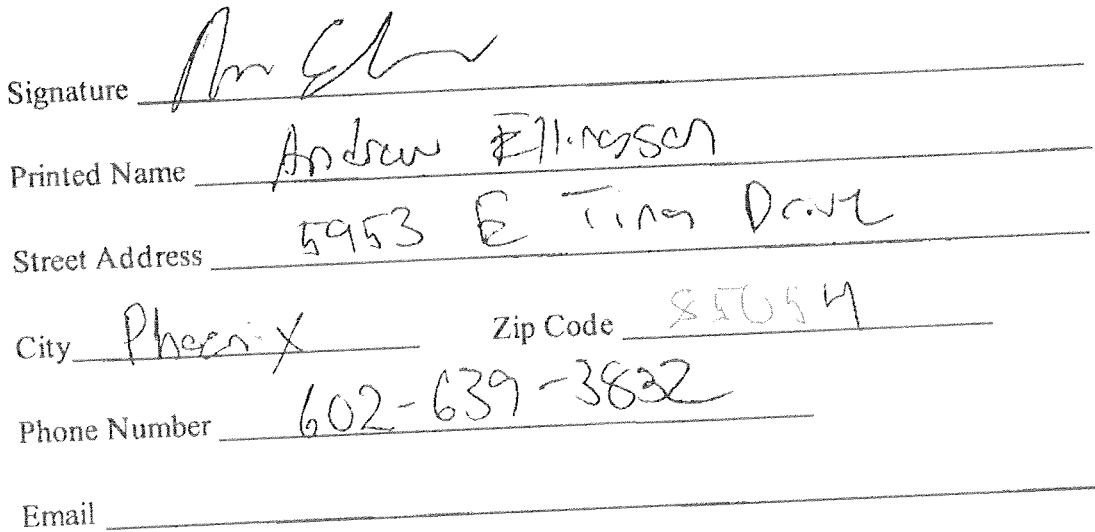 Signature
Printed Name Andrew Ellingson
Street Address 5953 E Tina Drive
City Phoenix Zip Code 85054
Phone Number 602-639-3832
Email